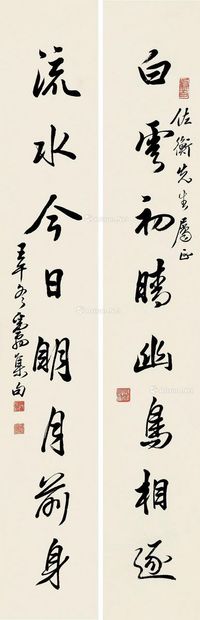 白雲初晴幽鳥相逐
佐衡先生屬正
流水今日明月前身
壬午冬
集句